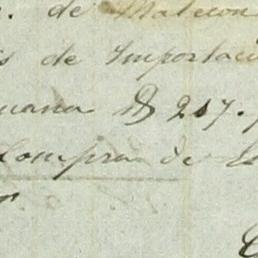 . de Malecon
s de Importaci
uana $ 217.
Compra de